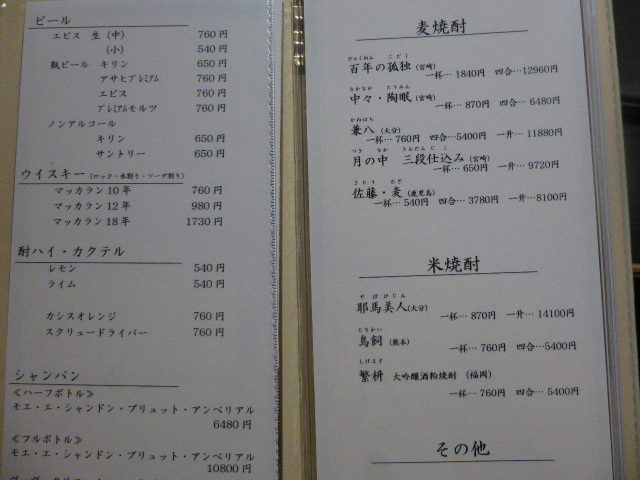 ビール
エビス 生(中) 760円
(小) 540円
瓶ビール キリン 650円
アサヒプレミアム 760円
エビス 760円
プレミアムモルツ 760円
ノンアルコール
キリン 650円
サントリー 650円
ウイスキー(ロック・水割り・ソーダ割り)
マッカラン10年 760円
マッカラン12年 980円
マッカラン18年 1730円
酎ハイ・カクテル
レモン 540円
ライム 540円
カシスオレンジ 760円
スクリュードライバー 760円
シャンパン
≪ハーフボトル≫
モエ・エ・シャンドン・ブリュット・アンペリアル
6480円
≪フルボトル≫
モエ・エ・シャンドン・ブリュット・アンペリアル
10800円
麦焼酎
ひゃくねん こどく
百年の孤独(宮崎)
一杯…1840円 四合…12960円
なかなか とうみん
中々・陶眠(宮崎)
一杯…870円 四合…6480円
かねはち
兼八(大分)
一杯…760円 四合…5400円 一升…11880円
つき なか さんだんじこ
月の中 三段仕込み(宮崎)
一杯…650円 一升…9720円
さとう むぎ
佐藤・麦(鹿児島)
一杯…540円 四合…3780円 一升…8100円
米焼酎
やばびじん
耶馬美人(大分)
一杯…870円 一升…14100円
とりかい
鳥飼(熊本)
一杯…760円 四合…5400円
しげます
繁枡 大吟醸酒粕焼酎(福岡)
一杯…760円 四合…5400円
その他